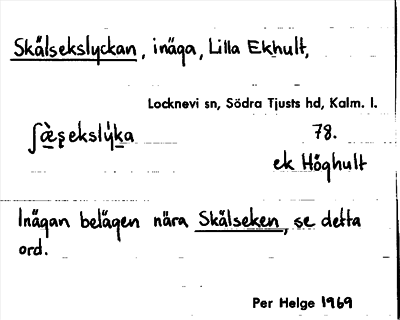 Skälsekslyckan, inäga, Lilla Ekhult,
Locknevi sn, Södra Tjusts hd, Kalm. l.
ʃæ̀ṣekslýka 78.
ek Höghult
Inägan belägen nära Skälseken, se detta
ord.
Per Helge 1969